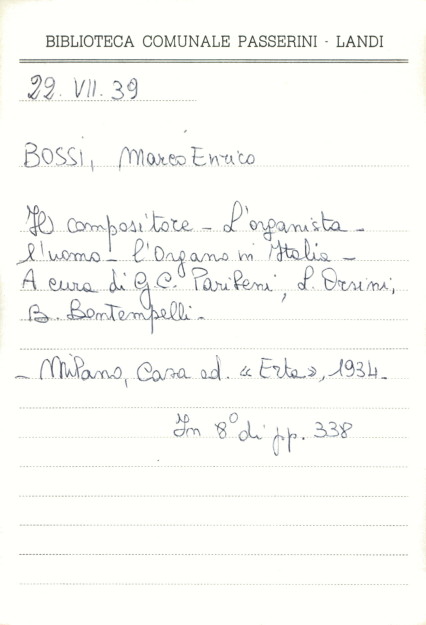 BIBLIOTECA COMUNALE PASSERINI - LANDI
29. VII. 39
BOSSI, Marco Enrico
Il compositore - L'organista -
l'uomo - l'Organo in Italia -
A cura di G.C. Paribeni, L. Orsini,
B. Bontempelli.
- Milano, Casa ed. « Erta », 1934.
In 8° di pp. 338